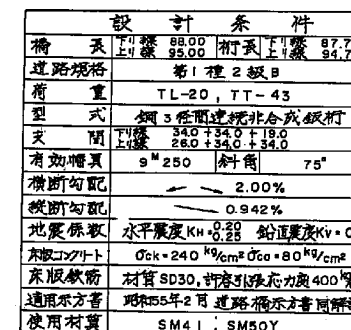 設計条件
橋長 下り線 88.00 上り線 95.00 桁長 下り線 87.7 上り線 94.7
道路規格 第1種2級B
荷重 TL-20, TT-43
型式 鋼3径間連続非合成鈑桁
支間 下り線 34.0+34.0+19.0 上り線 26.0+34.0+34.0
有効幅員 9ᴹ250 斜角 75°
横断勾配 2.00%
縦断勾配 0.942%
地震係数 水平震度KH=0.20 0.25 鉛直震度KV=0
床版コンクリート σck=240kg/cm² σca=80kg/cm²
床版鉄筋 材質SD30, 許容引張応力度400k
適用示方書 昭和55年2月 道路橋示方書同解
使用材質 SM41, SM50Y